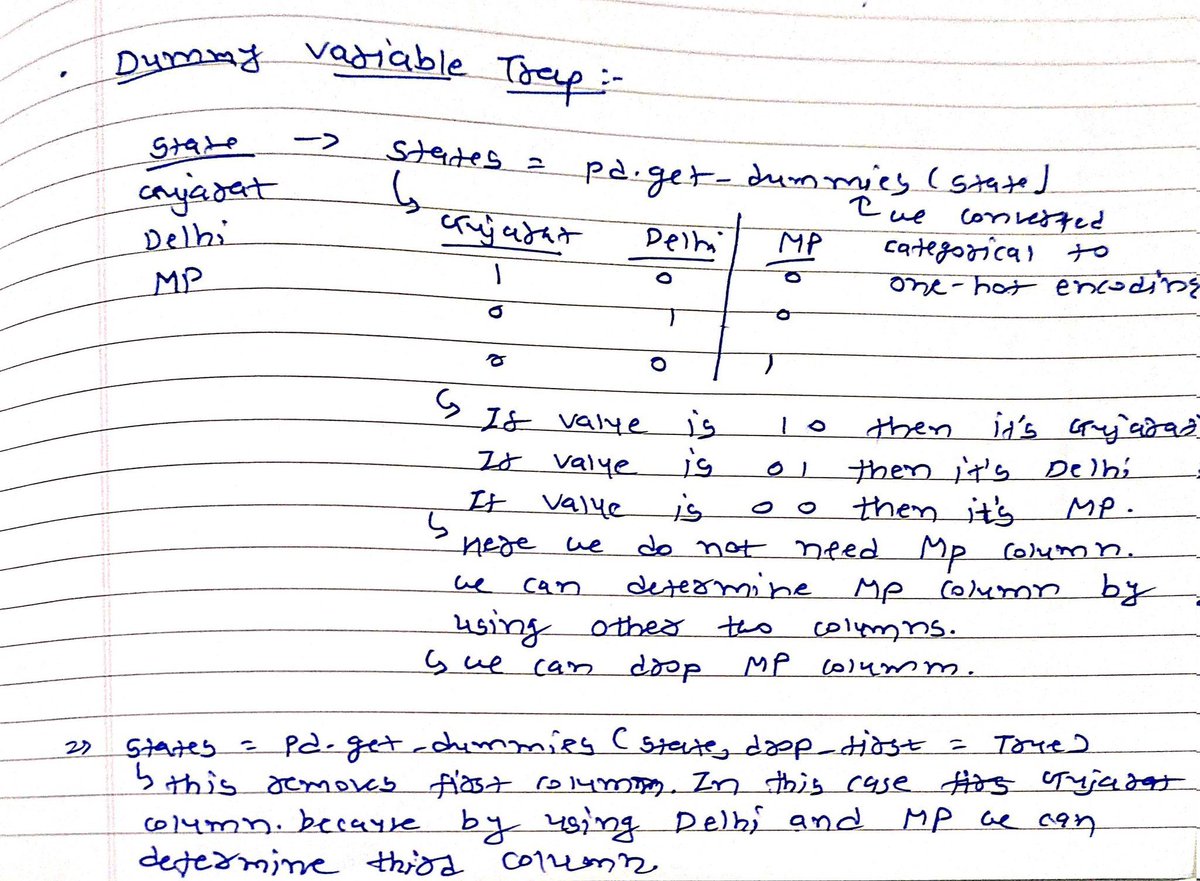 . Dummy Variable Trap :-
State -> states = pd.get_dummies (state)
Gujarat ↳ ↑ we converted
Delhi Gujarat Delhi MP categorical to
MP 1 0 0 one-hot encoding
0 1 0
0 0 1
↳ If value is 1 0 then it's Gujarat
If value is 0 1 then it's Delhi
If value is 0 0 then it's MP.
↳ here we do not need MP column.
we can determine MP column by
using other two columns.
↳ we can drop MP column.
=> states = pd.get_dummies (state, drop_first = True)
↳ this removes first column. In this case Gujarat
column. because by using Delhi and MP we can
determine third column.